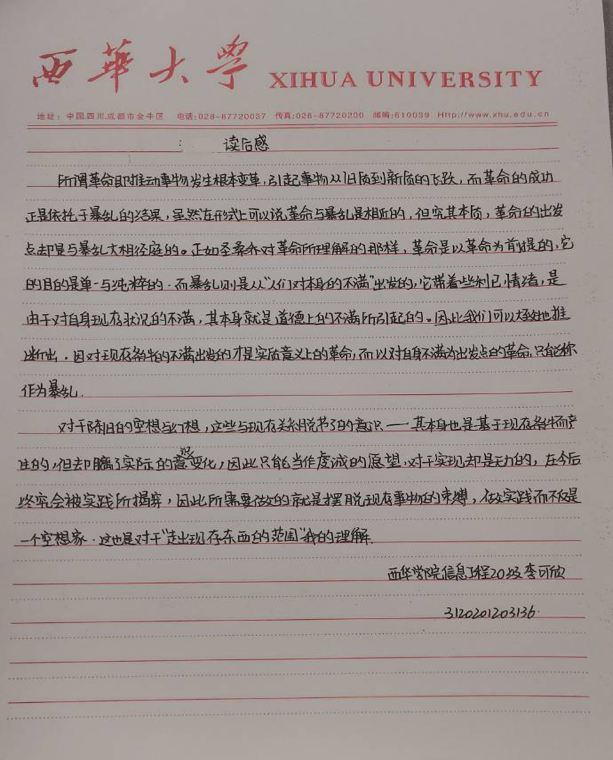 西華大学 XIHUA UNIVERSITY
地址：中国.四川.成都市金牛区 电话:028-87720037 传真:028-87720200 邮编:610039 Http://www.xhu.edu.cn
：
读后感
所谓革命即推动事物发生根本变革，引起事物从旧质到新质的飞跃，而革命的成功
正是依托于暴乱的结果，虽然在形式上可以说革命与暴乱是相近的，但究其本质，革命的出发
点却是与暴乱大相径庭的。正如圣桑乔对革命所理解的那样，革命是以革命为前提的，它
的目的是单一与纯粹的，而暴乱则是从“人们对本身的不满”出发的，它带着些利己情绪，是
由于对自身现存状况的不满，其本身就是道德上的不满所引起的。因此我们可以大致地推
断出，因对现存条件的不满出发的才是实质意义上的革命，而以对自身不满为出发点的革命，只能称
作为暴乱.
对于陈旧的空想与幻想，这些与现存关系脱节了的意识——其本身也是基于现存条件而产
生的，但却瞒了实际的意识变化，因此只能当作虔诚的愿望，对于实现却是无力的，在今后
终究会被实践所揭穿，因此所需要做的就是摆脱现存事物的束缚，做实践而不仅是
一个空想家.这也是对于“走出现存东西的范围”我的理解.
西华学院信息工程20级李可欣
3120201203136